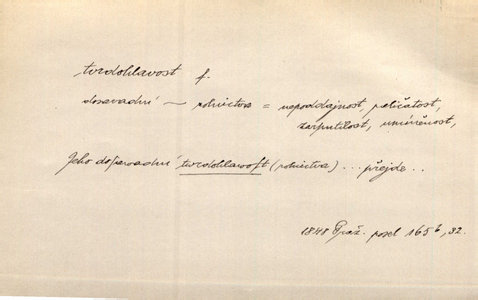 tvrdohlavost f.
dosavadní — rolnictva = nepoddajnost, paličatost,
zarputilost, umíněnost,
Jeho doſavadní tvrdohlawoſt (rolnictva) ... přejde ..
1848 Praž. posel 165 b, 32.